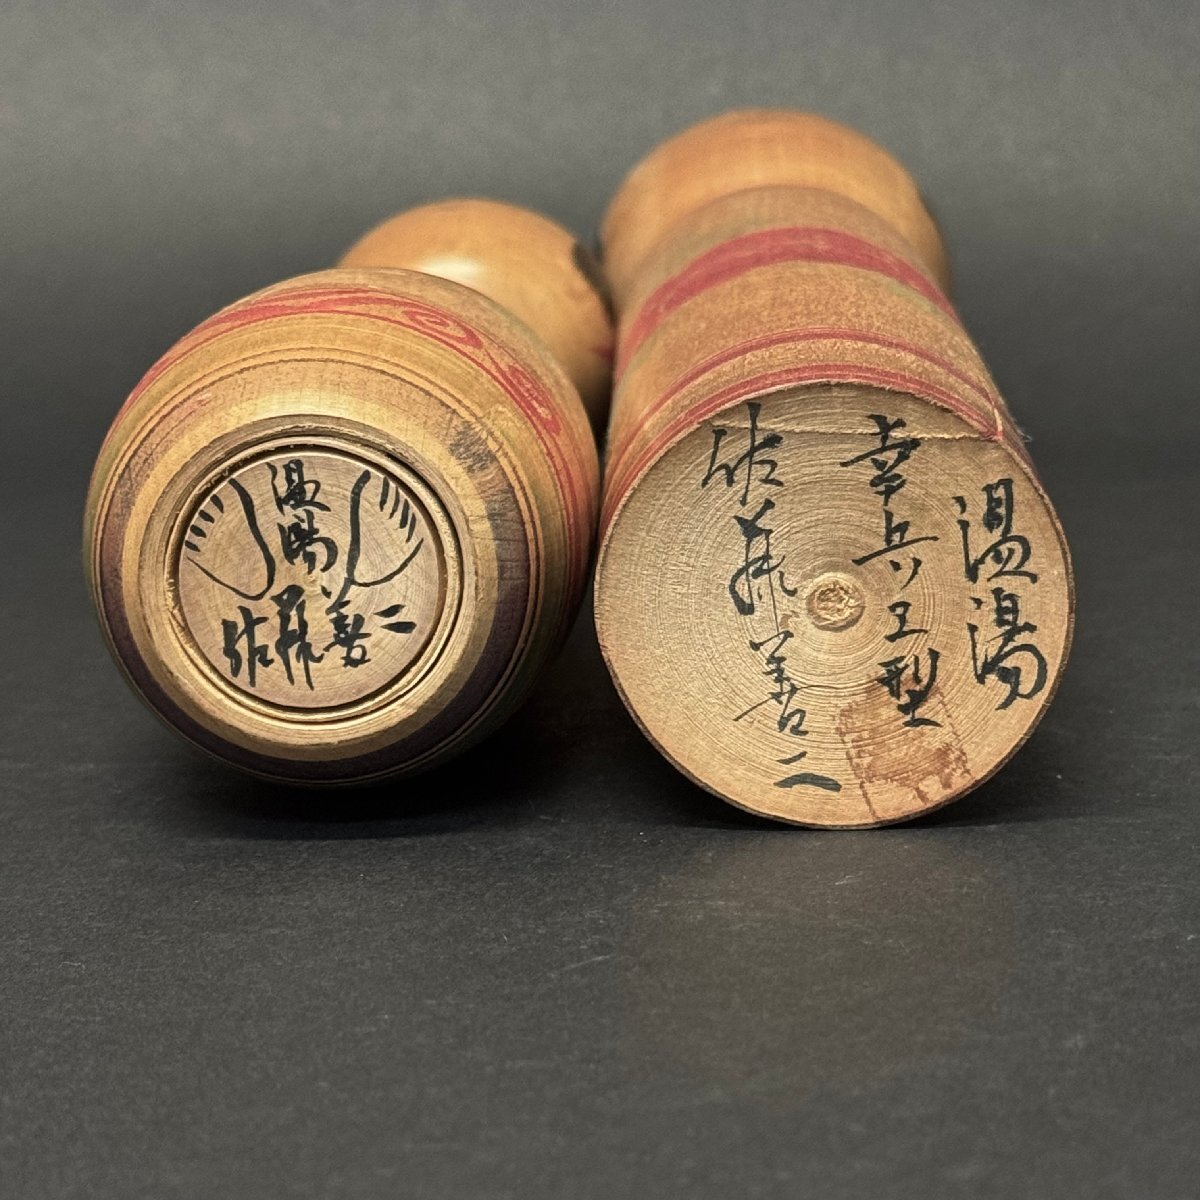 温湯
佐藤善二
温湯
幸兵ヱ型
佐藤善二